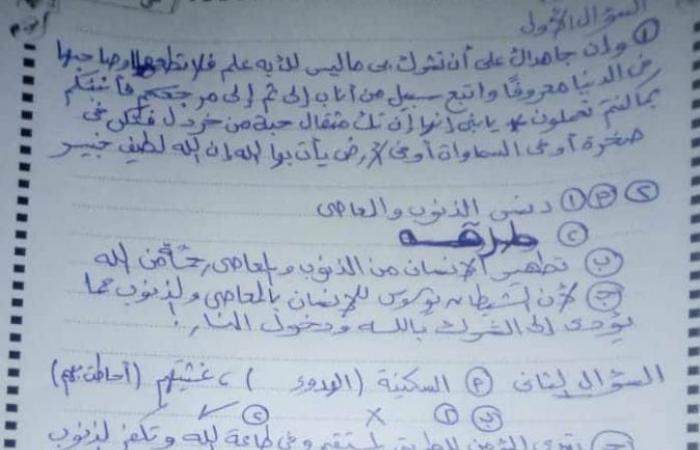 السؤال الأول
① وإن جاهداك على أن تشرك بى ما ليس لك به علم فلا تطعهما وصاحبهما
فى الدنيا معروفاً واتبع سبيل من أناب إلى ثم إلى مرجعكم فأنبئكم
بما كنتم تعملون * يا بنى إنها إن تك مثقال حبة من خردل فتكن فى
صخرة أو فى السماوات أو فى الأرض يأت بها الله إن الله لطيف خبير
② أ ① دنس الذنوب والمعاصى
② طرقه
ب تطهير الإنسان من الذنوب والمعاصى رحمة من الله
ج لأن الشيطان يوسوس للإنسان بالمعاصى والذنوب مما
يؤدى إلى الشرك بالله ودخول النار.
السؤال الثانى أ السكينة (الهدوء)، غشيتهم (أحاطت بهم)
ب ① × ② ✓
ج المستقيم وفى طاعة الله وتكفر الذنوب